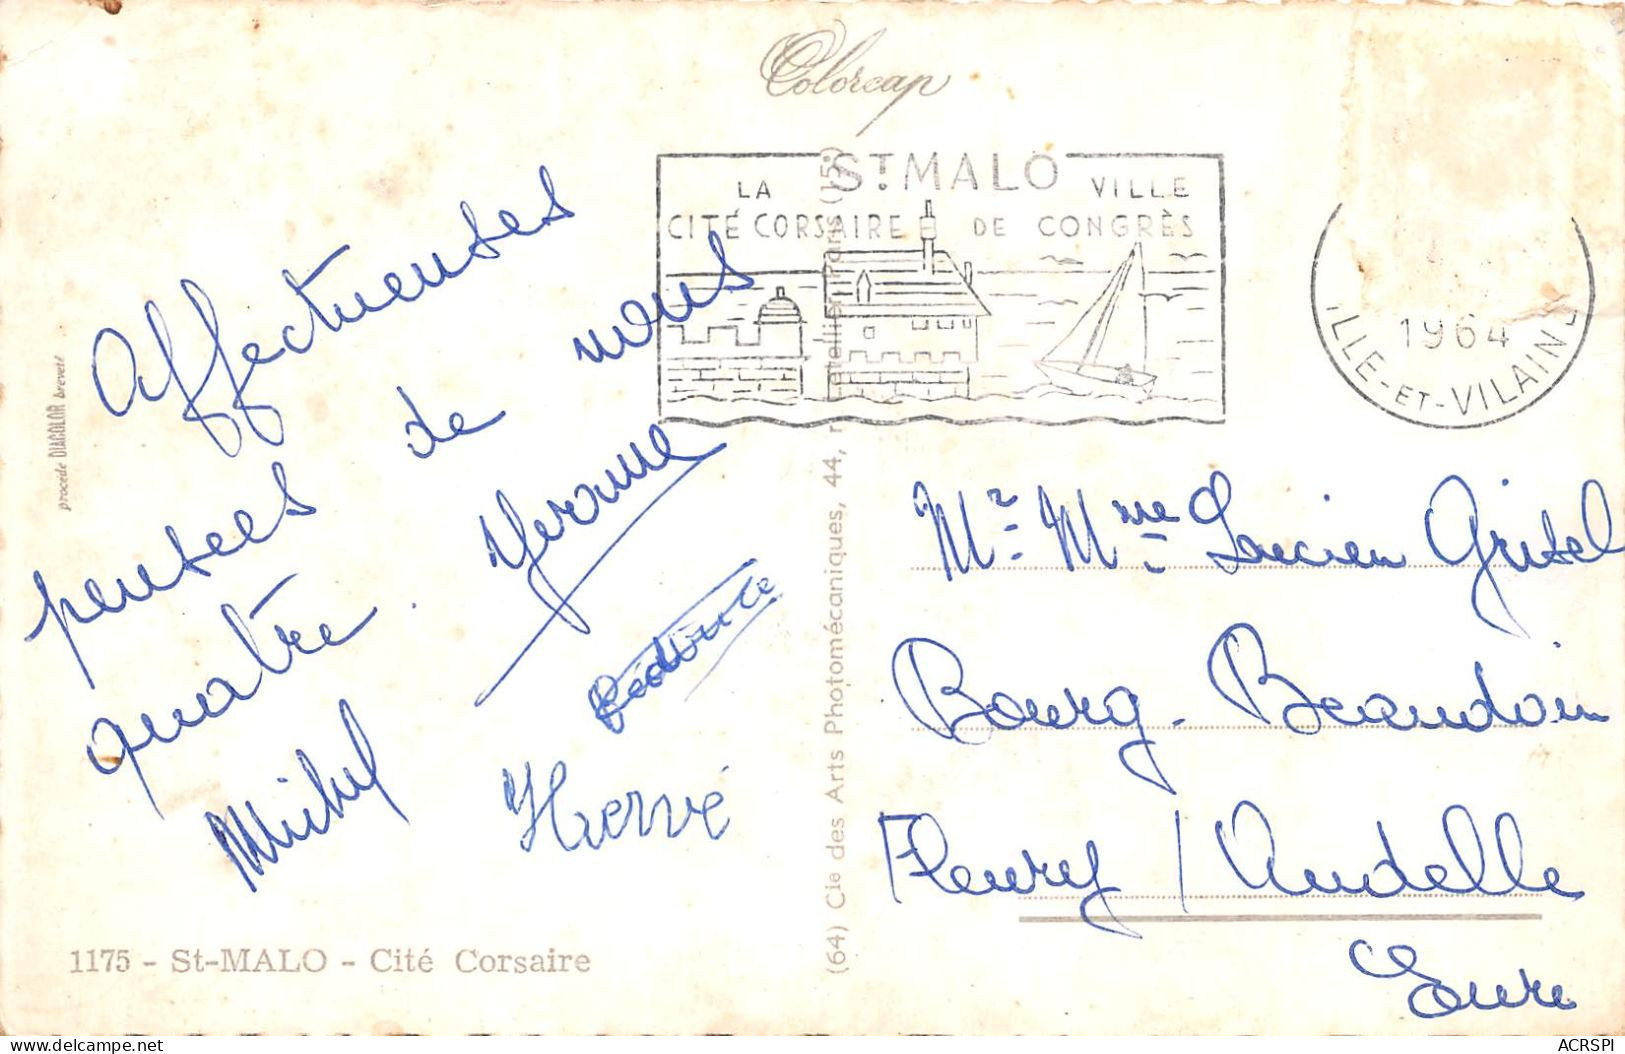 Colorcap
ST MALO
LA VILLE
CITÉ CORSAIRE DE CONGRÈS
1964
ILLE-ET-VILAINE
procédé DIACOLOR breveté
Affectueuses
pensées de nous
quatre.
Michel
Hervé
Mr. M Mme Lucien Grisel
Bourg-Beaudoin
Fleury / Andelle
Eure
(64) Cie des Arts Photomécaniques, 44, Paris (15e)
1175 - St-MALO - Cité Corsaire
ACRSPI